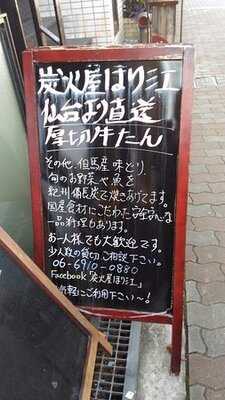 炭火屋ほり江
仙台より直送
厚切牛たん
その他、但馬産味どり、
旬のお野菜や魚を
紀州備長炭で焼きあげてます。
国産食材にこだわった
一品料理もあります。
お一人様でも大歓迎です。
少人数の貸切ご相談下さい。
06-6910-0880
Facebook「炭火屋ほり江」
気軽にご利用下さい〜!